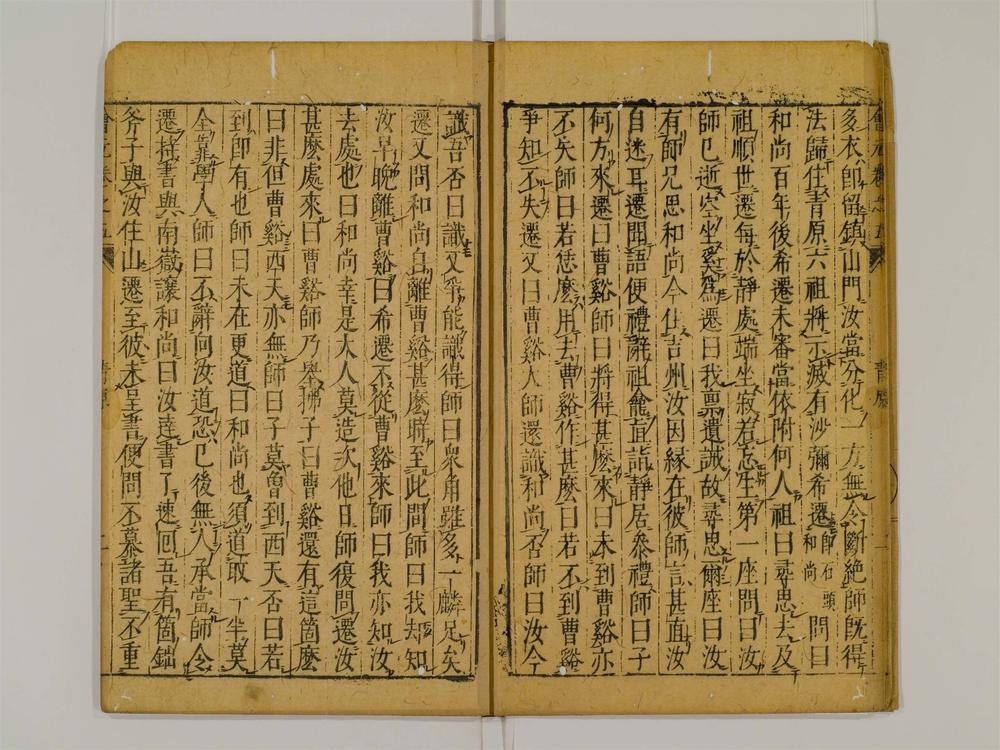 多衣即留鎮山門汝當分化一方無令斷絕師既得
法歸住青原六祖將示滅有沙彌希遷即石頭和尚問曰
和尚百年後希遷未審當依附何人祖曰尋思去及
祖順世遷每於靜處端坐寂若忘生第一座問曰汝
師已逝空坐奚為遷曰我稟遺誡故尋思爾座曰汝
有師兄思和尚今住吉州汝因緣在彼師言甚直汝
自迷耳遷聞語便禮辭祖龕直詣靜居參禮師曰子
何方來遷曰曹谿師曰將得甚麼來曰未到曹谿亦
不失師曰若恁麼用去曹谿作甚麼曰若不到曹谿
爭知不失遷又曰曹谿大師還識和尚否師曰汝今
識吾否曰識又爭能識得師曰衆角雖多一麟足矣
遷又問和尚自離曹谿甚麼時至此間師曰我却知
汝早晚離曹谿曰希遷不從曹谿來師曰我亦知汝
去處也曰和尚幸是大人莫造次他日師復問遷汝
甚麼處來曰曹谿師乃舉拂子曰曹谿還有這箇麼
曰非但曹谿西天亦無師曰子莫曾到西天否曰若
到即有也師曰未在更道曰和尚也須道取一半莫
全靠學人師曰不辭向汝道恐已後無人承當師令
遷持書與南嶽讓和尚曰汝達書了速回吾有箇鈯
斧子與汝住山遷至彼未呈書便問不慕諸聖不重